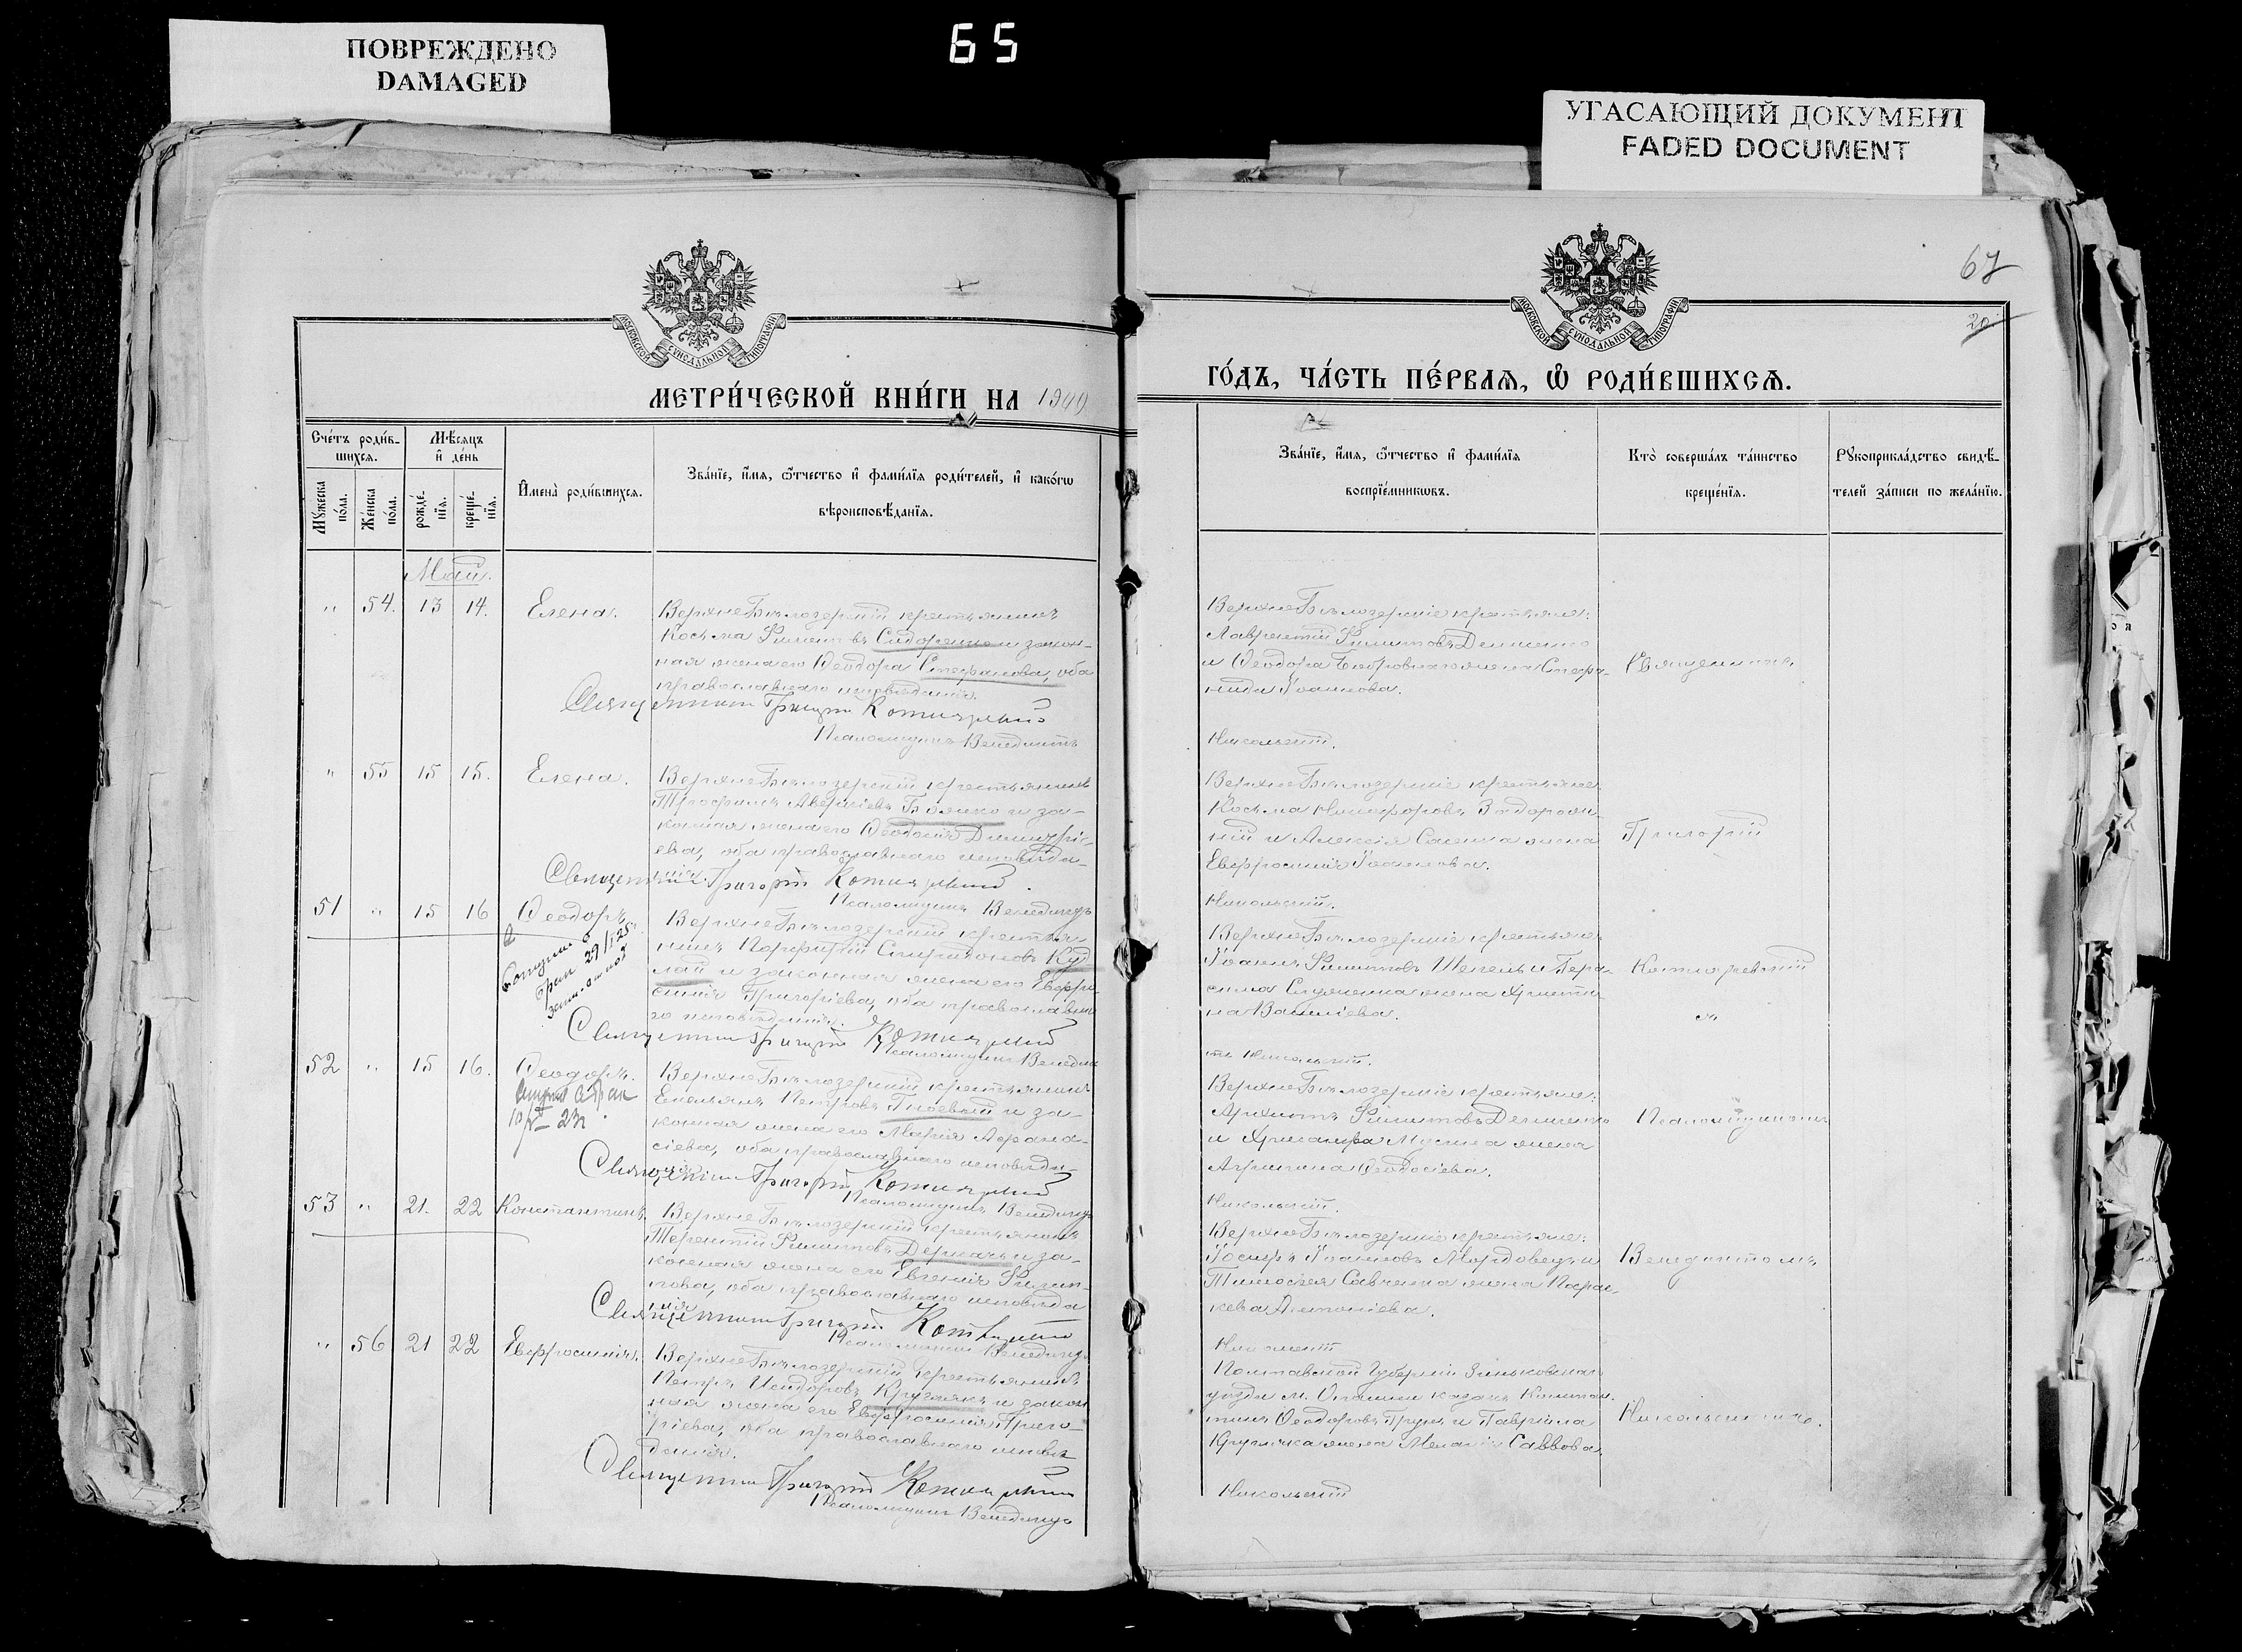 ПОВРЕЖДЕНО
DAMAGED
65
УГАСАЮЩИЙ ДОКУМЕНТ
FADED DOCUMENT
67
20
МОСКОВСКОЙ СУНОДАЛЬНОЙ ТИПОГРАФІИ
МОСКОВСКОЙ СУНОДАЛЬНОЙ ТИПОГРАФІИ
МЕТРИ́ЧЕСКОЙ КНИ́ГИ НА
ГО́ДЪ, ЧА́СТЬ ПЕ́РВАЯ, Ѡ РОДИ́ВШИХСЯ.
Сче́тъ роди́в-
шихся.
Мѣ́сяцъ
и де́нь
Му́жеска
по́ла.
Же́нска
по́ла.
рожде́-
нїя.
креще́-
нїя.
Имена̀ роди́вшихся.
Зва́нїе, и́мя, ѻ́тчество и фами́лїя роди́телей, и како́гѡ
вѣроисповѣ́данїя.
Зва́нїе, и́мя, ѻ́тчество и фами́лїя
воспрїе́мникѡвъ.
Кто̀ соверша́лъ та́инство
креще́нїя.
Рукоприкла́дство свидѣ́-
телей за́писи по жела́нїю.
Май.
" 54. 13 14. Елена.
ВерхнеБѣлозерскій крестьянинъ
Косьма Филиппов Сидоренко и закон-
ная жена его Ѳеодора Стефанова, оба
православнаго исповѣданія.
Священникъ Григорій
Псаломщикъ Венедиктъ
ВерхнеБѣлозерскіе крестьяне:
Лаврентій Филипповъ Демченко
и Ѳеодора жена Стефа-
нида Іоаннова.
Никольскій.
Священникъ
" 55 15 15. Елена.
ВерхнеБѣлозерскій крестьянинъ
Трофимъ и за-
конная жена его Ѳеодосія Димитріе-
ева, оба православнаго исповѣда-
нія.
Священникъ Григорій
Псаломщикъ Венедиктъ
ВерхнеБѣлозерскіе крестьяне
Косьма Никифоровъ Задорож-
ній и Алексія жена
Евфросинія Іоаннова.
Никольскій.
Григорій
51 " 15 16 Ѳеодоръ
ВерхнеБѣлозерскій крестья-
нинъ Порфирій Спиридоновъ Ку-
лай и законная жена его Евфро-
синія Григоріева, оба православна-
го исповѣданія.
Священникъ Григорій
Псаломщикъ Венедик
ВерхнеБѣлозерскіе крестьяне:
Іоаннъ Филипповъ Шепель и Гера-
сима жена Христи-
на Василіева.
тъ Никольскій.
52 " 15 16. Ѳеодоръ.
ВерхнеБѣлозерскій крестьянинъ
Емельянъ Петровъ Гноевый и за-
конная жена его Марія Аѳана-
сіева, оба православнаго исповѣда-
нія.
Священникъ Григорій
Псаломщикъ Венедиктъ
ВерхнеБѣлозерскіе крестьяне:
Филипповъ Демченко
и жена
Агрипина Ѳеодосіева.
Никольскій.
Псаломщикомъ
53 " 21. 22 Константинъ.
ВерхнеБѣлозерскій крестьянинъ
Терентій Филипповъ Деркачъ и за-
конная жена его Евгенія Филип-
пова, оба православнаго исповѣда
нія.
Священникъ Григорій
Псаломщикъ Венедиктъ
ВерхнеБѣлозерскіе крестьяне:
Іосифъ Іоанновъ Мордовецъ и
Тимоѳея Савченка жена Парас-
кева Антоніева.
Никольскій
Венедиктомъ
" 56 21 22 Евфросинія.
ВерхнеБѣлозерскій крестьянинъ
Петръ Исидоровъ Круглякъ и закон
ная жена его Евфросинія Григо-
ріева, оба православнаго исповѣ-
данія.
Священникъ Григорій
Псаломщикъ Венедиктъ
Полтавской Губерніи Зеньковскаго
уѣзда м. Опошни казакъ Констан-
тинъ Ѳеодоровъ и Гавріила
Кругляка жена Меланія Саввова.
Никольскій
Никольскимъ.